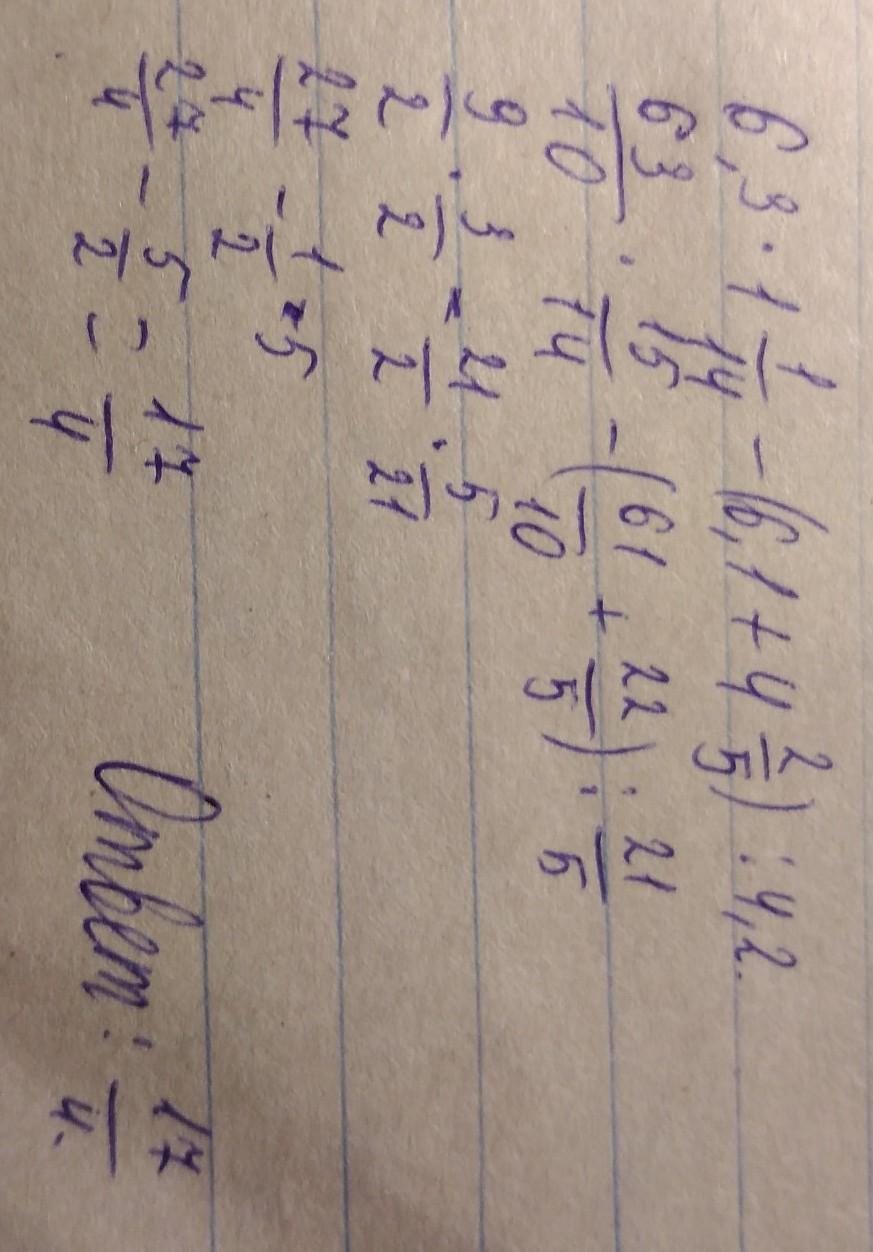 6,3 · 1 1/14 - (6,1 + 4 2/5) : 4,2.
63/10 · 15/14 - (61/10 + 22/5) : 21/5
9/2 · 3/2 - 21/2 · 5/21
27/4 - 1/2 · 5
27/4 - 5/2 = 17/4
Ответ: 17/4.